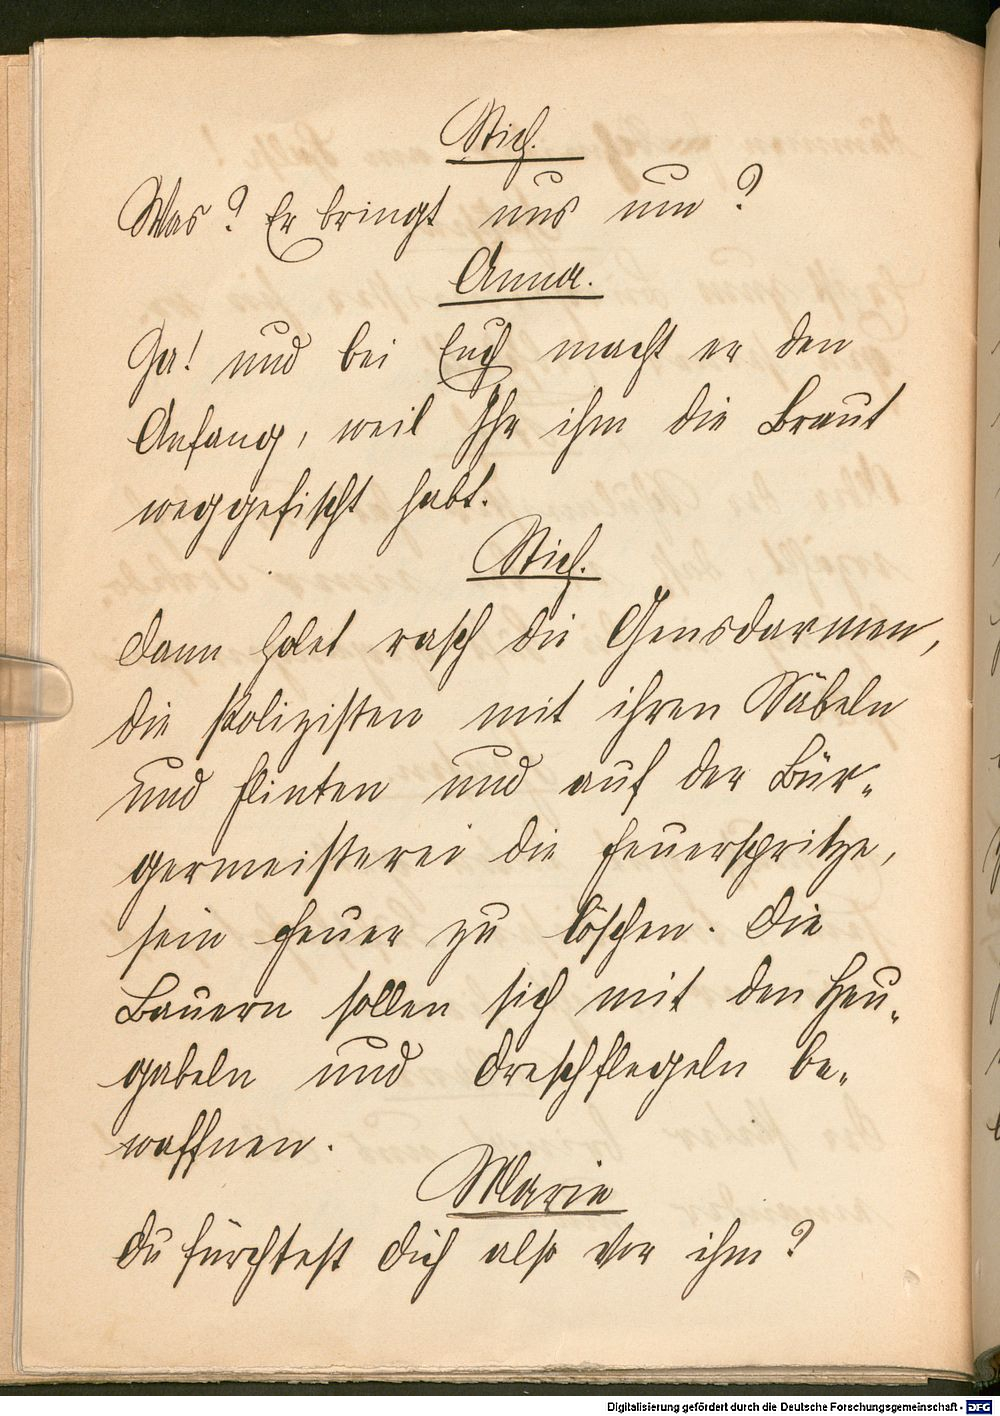 Stich.
Was? Er bringt uns um?
Anna.
Ja! und bei Euch macht er den
Anfang, weil Ihr ihm die Braut
weggefischt habt.
Stich.
Dann holet rasch die Gensdarmen,
die Polizisten mit ihren Säbeln
und Flinten und auf der Bür-
germeisterei die Feuerspritze,
sein Feuer zu löschen. Die
Bauern sollen sich mit den Heu-
gabeln und Dreschflegeln be-
waffnen.
Marie
Du fürchtest dich also vor ihm?
Digitalisierung gefördert durch die Deutsche Forschungsgemeinschaft - DFG